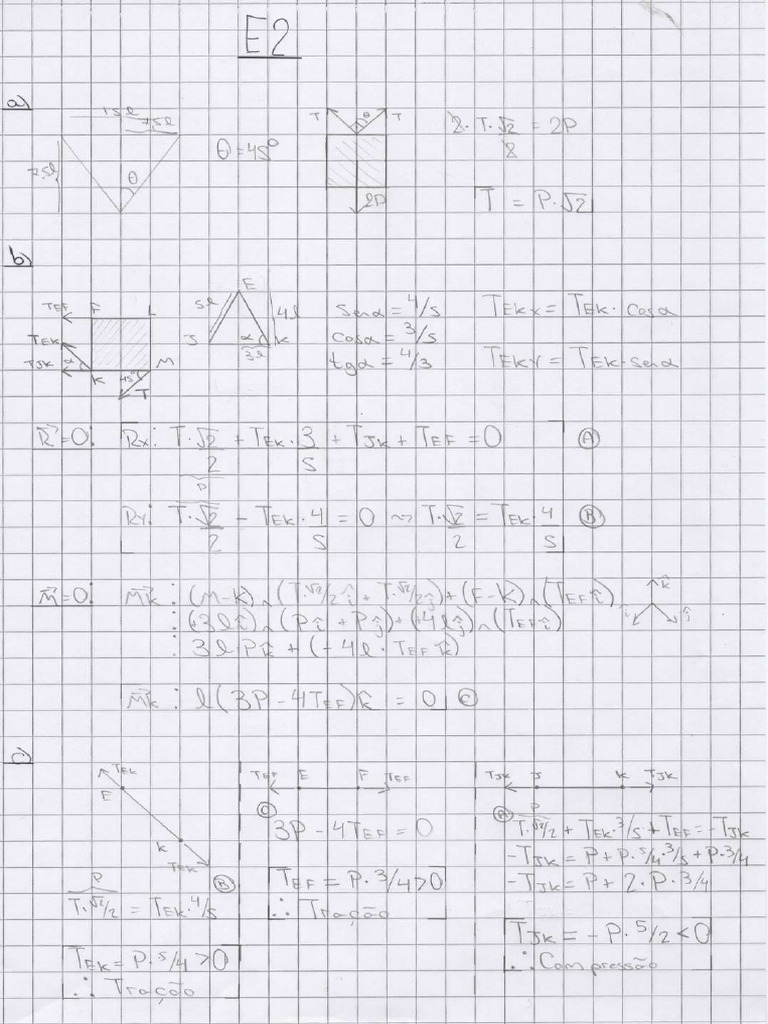 E2
a)
15l
7,5l
7,5l
θ
θ = 45°
T θ T
2P
2 · T · √2 / 2 = 2P
T = P · √2
b)
TEF F L
TEK
TJK α
K 45° M
T
E
5l
4l
J α K
3l
sen α = 4/5
cos α = 3/5
tg α = 4/3
TEKx = TEK · cos α
TEKY = TEK · sen α
R = 0: Rx: T · √2/2 + TEK · 3/5 + TJK + TEF = 0 (A)
P
RY: T · √2/2 - TEK · 4/5 = 0 ~> T · √2/2 = TEK · 4/5 (B)
M = 0: MK : (M-K) ∧ (T · √2/2 î + T · √2/2 ĵ) + (F-K) ∧ (TEF î)
: (+3l î) ∧ (P î + P ĵ) + (+4l ĵ) ∧ (TEF î)
: 3lP k̂ + (-4l · TEF k̂)
k̂
ĵ
î
MK : l(3P - 4TEF) k̂ = 0 (C)
c)
TEK
E
K
TEK
P (B)
T · √2/2 = TEK · 4/5
TEK = P · 5/4 > 0
∴ Tração
TEF E F TEF
(C)
3P - 4TEF = 0
TEF = P · 3/4 > 0
∴ Tração
TJK J K TJK
(A) P
T · √2/2 + TEK · 3/5 + TEF = -TJK
-TJK = P + P · 5/4 · 3/5 + P · 3/4
-TJK = P + 2 · P · 3/4
TJK = - P · 5/2 < 0
∴ Compressão